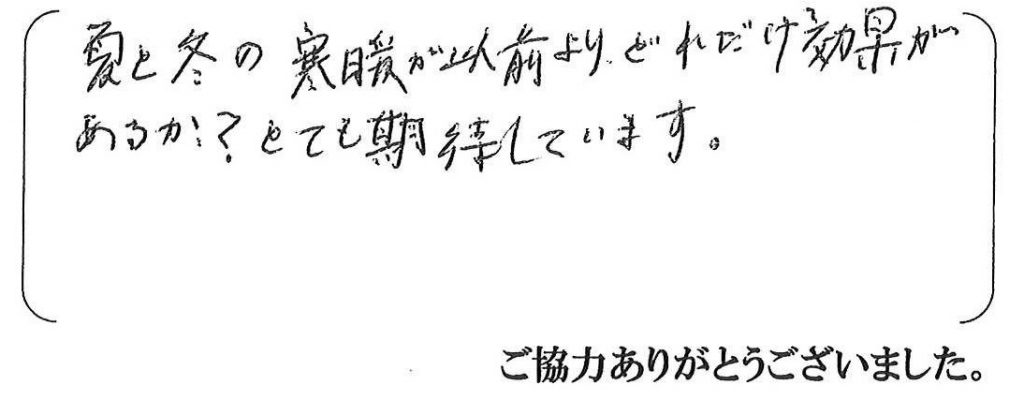 夏と冬の寒暖が以前よりどれだけ効果が
あるか?とても期待しています。
ご協力ありがとうございました。